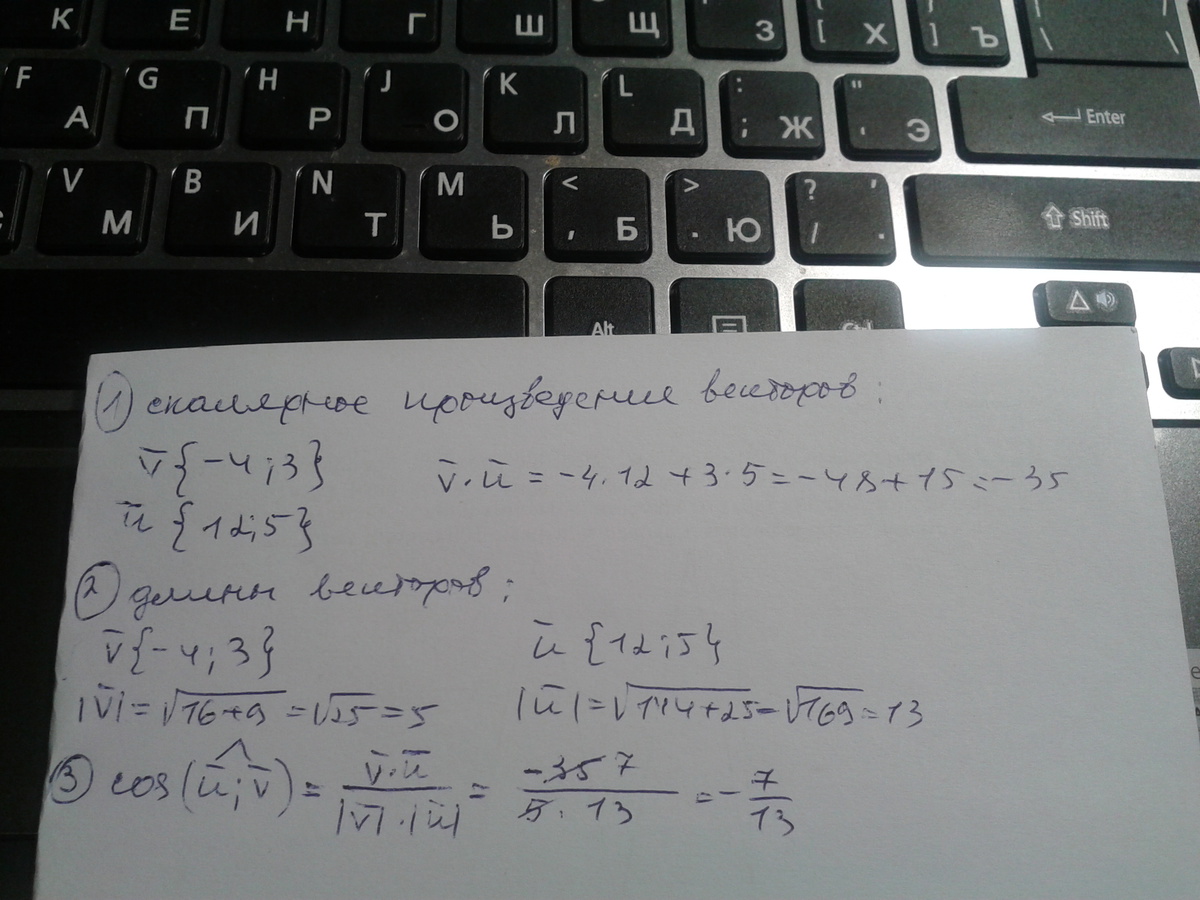 К Е Н Г Ш Щ З [ Х ] Ъ \ / \
F А G П H Р J О K Л L Д : ; Ж " ' Э Enter
V М B И N Т M Ь < , Б > . Ю ? / , . Shift
Alt Ctrl
1 скалярное произведение векторов:
v̄{-4;3} v̄·ū = -4·12+3·5=-48+15=-35
ū {12;5}
2 длины векторов:
v̄{-4;3} ū {12;5}
|v̄|=√16+9=√25=5 |ū|=√144+25=√169=13
3 cos(ū;v̄)= v̄·ū / |v̄|·|ū| = -35 7 / 5·13 = -7/13